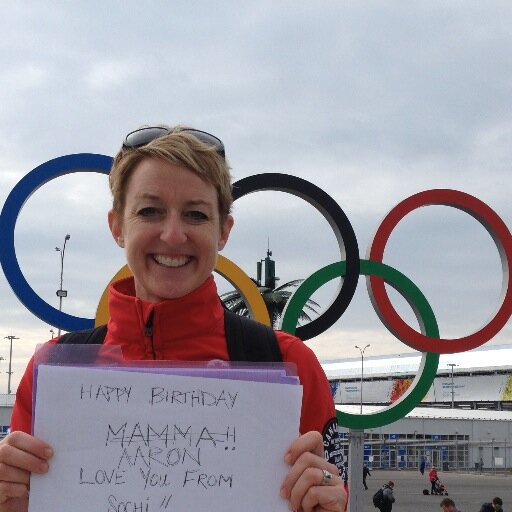 HAPPY BIRTHDAY
MAMMA!!
AARON
LOVE YOU FROM
SOCHI!!